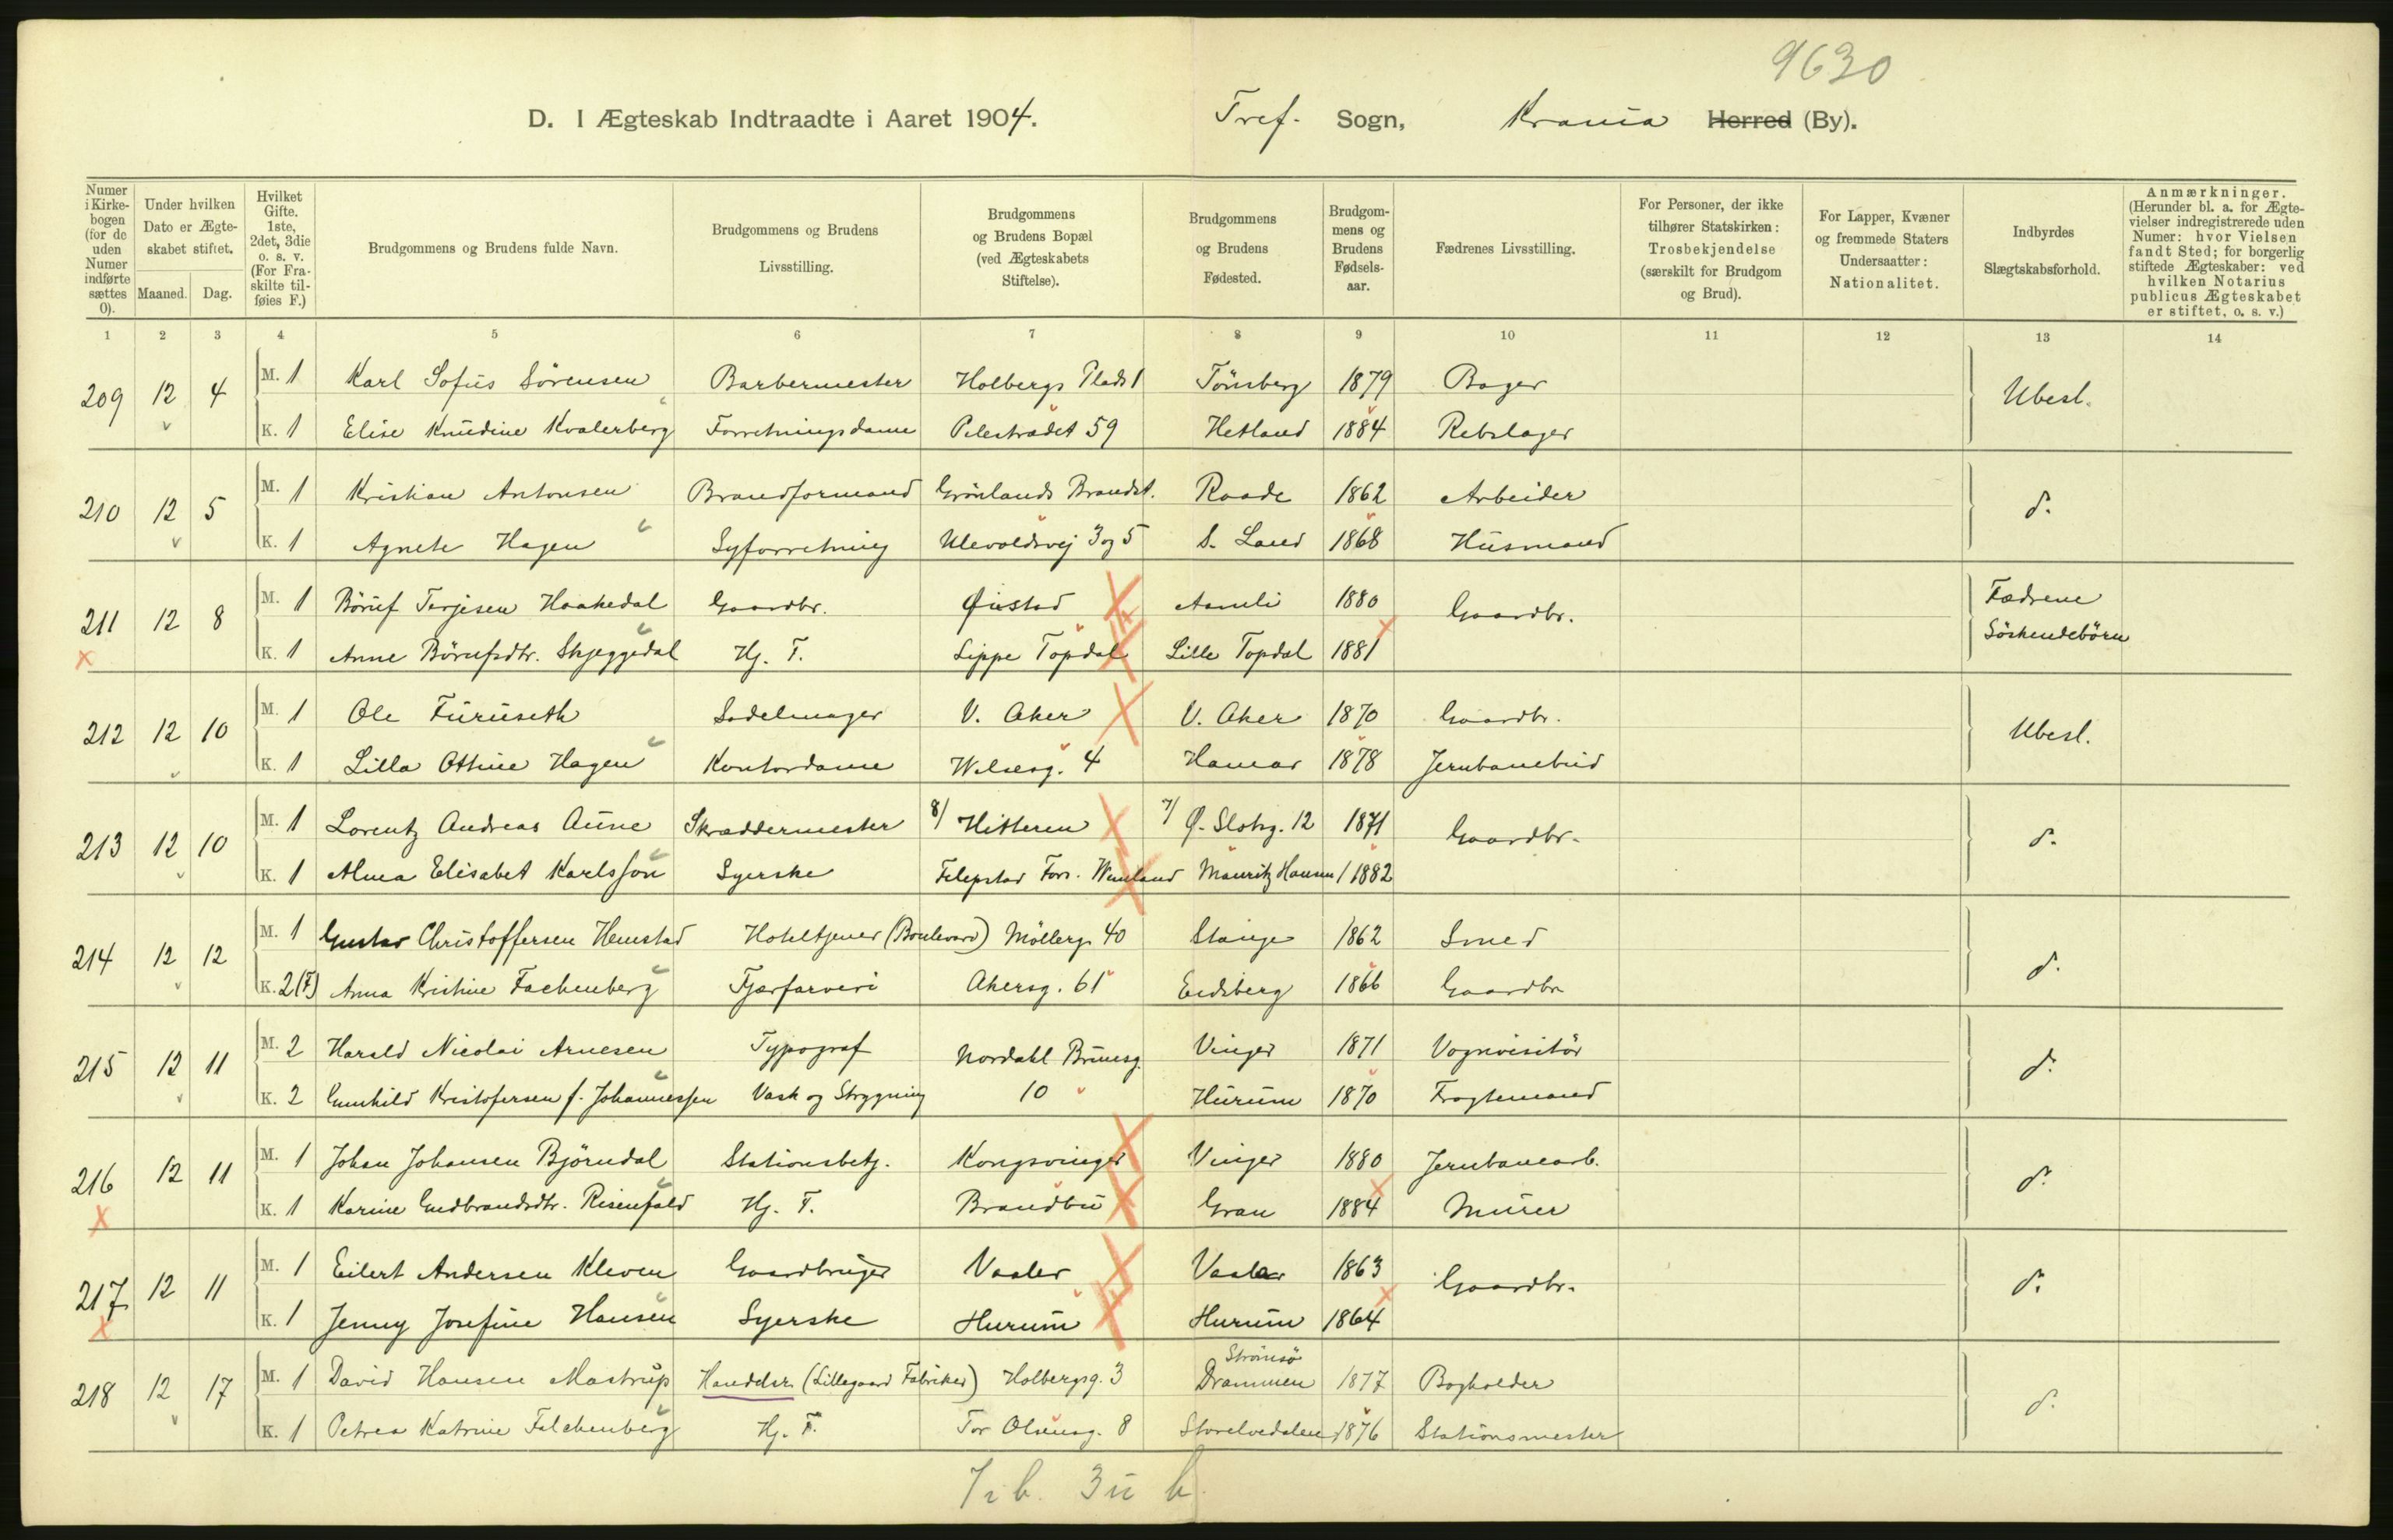 9630
D. I Ægteskab Indtraadte i Aaret 1904. Tref. Sogn, Krania Herred (By).
Numer i Kirkebogen (for de uden Numer indførte sættes 0).
Under hvilken Dato er Ægteskabet stiftet.
Maaned. Dag.
Hvilket Gifte. 1ste, 2det, 3die o. s. v. (For Fraskilte tilføies F.)
Brudgommens og Brudens fulde Navn.
Brudgommens og Brudens Livsstilling.
Brudgommens og Brudens Bopæl (ved Ægteskabets Stiftelse).
Brudgommens og Brudens Fødested.
Brudgommens og Brudens Fødselsaar.
Fædrenes Livsstilling.
For Personer, der ikke tilhører Statskirken: Trosbekjendelse (særskilt for Brudgom og Brud).
For Lapper, Kvæner og fremmede Staters Undersaatter: Nationalitet.
Indbyrdes Slægtskabsforhold.
Anmærkninger. (Herunder bl. a. for Ægtevielser indregistrerede uden Numer: hvor Vielsen fandt Sted; for borgerlig stiftede Ægteskaber: ved hvilken Notarius publicus Ægteskabet er stiftet, o. s. v.)
1 2 3 4 5 6 7 8 9 10 11 12 13 14
209 12 4 M. 1 Karl Sofus Sörensen Barbermester Holbergs Plads 1 Tönsberg 1879 Bager Ubesl.
K. 1 Elise Knudine Kvalerberg Forretningsdame Pilestrædet 59 Hetland 1884 Rebslager
210 12 5 M. 1 Kristian Antonsen Brandformand Grönlands Brandst. Raade 1862 Arbeider d.
K. 1 Agnete Hagen Syforretning Ulevoldsvej 3 og 5 S. Land 1868 Husmand
211 12 8 M. 1 Böruf Terjesen Haakedal Gaardbr. Øiestad Aamli 1880 Gaardbr. Fædrene
K. 1 Anne Börufsdtr. Skjeggedal Hj. T. Lippe Topdal Lille Topdal 1881 Söskendebörn
212 12 10 M. 1 Ole Furuseth Sadelmager V. Aker V. Aker 1870 Gaardbr. Ubesl.
K. 1 Lilla Othine Hagen Kontordame Welseg. 4 Hamar 1878 Jernbanebud
213 12 10 M. 1 Lorentz Andreas Aune Skræddermester 8/ Hitteren 7/ Ø. Slotsg. 12 1871 Gaardbr. d.
K. 1 Alma Elisabet Karlsson Syerske Filipstad Fors. Wemland Mauritz Hansen 1 1882
214 12 12 M. 1 Gustav Christoffersen Hemstad Hoteltjener (Boulevard) Möllerg. 40 Stange 1862 Smed d.
K. 2 (F.) Anna Kristine Fachenberg Fjærfarveri Akersg. 61 Eidsberg 1866 Gaardbr.
215 12 11 M. 2 Harald Nicolai Arnesen Typograf Nordahl Brunsg. Vinger 1871 Vognvisitör d.
K. 2 Gunhild Kristofersen f. Johannessen Vask og Strygning 10 Hurum 1870 Fragtemand
216 12 11 M. 1 Johan Johansen Björndal Stationsbetj. Kongsvinger Vinger 1880 Jernbanearb. d.
K. 1 Karine Gudbrandsdtr. Risenfald Hj. T. Brandbu Gran 1884 Murer
217 12 11 M. 1 Eilert Andersen Kleven Gaardbruger Vaaler Vaaler 1863 Gaardbr. d.
K. 1 Jenny Josefine Hansen Syerske Hurum Hurum 1864
218 12 17 M. 1 David Hansen Mastrup Handelsr. (Lillegaard Fabriker) Holbergsg. 3 Strömsö Drammen 1877 Bogholder d.
K. 1 Petrea Katrine Falchenberg Hj. F. Tor Olsensg. 8 Storelvedalen 1876 Stationsmester
7 i b. 3 u b.